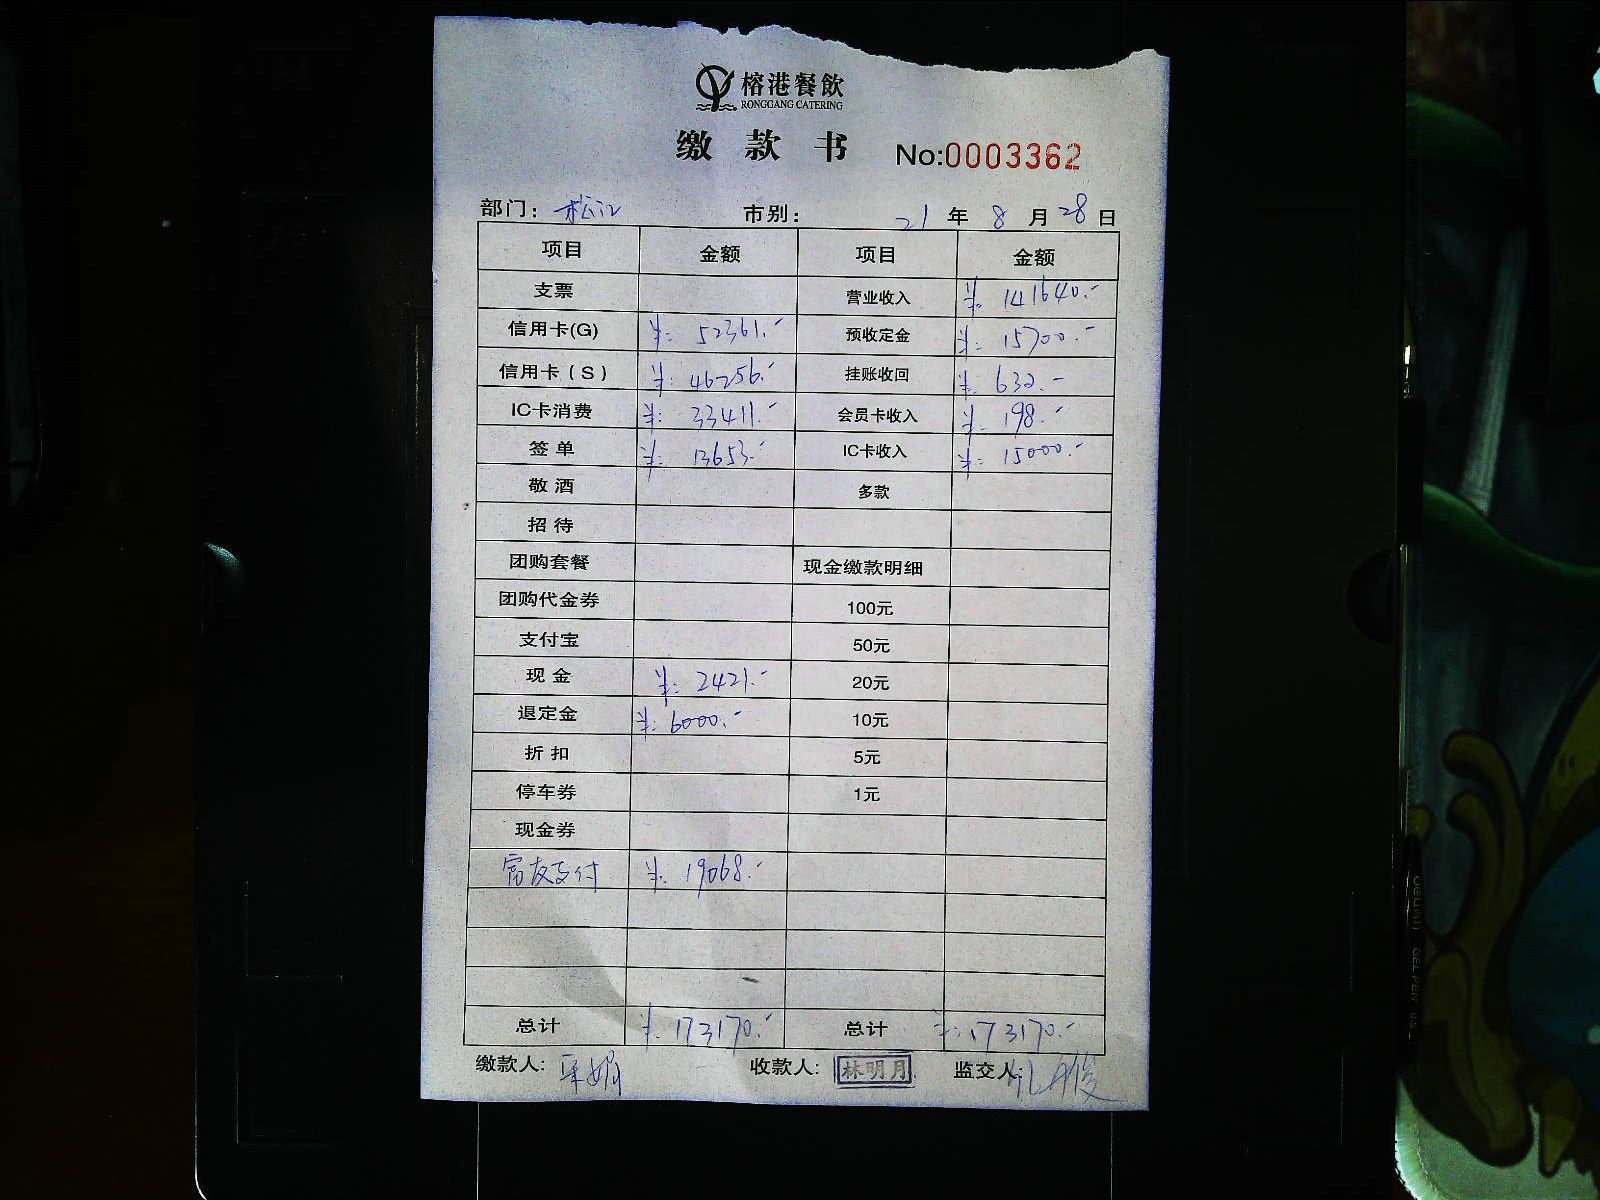 榕港餐飲
RONGGANG CATERING
缴款书 No:0003362
部门: 松江 市别: 21年8月28日
项目 金额 项目 金额
支票 营业收入 ¥:141640.-
信用卡(G) ¥:52361.- 预收定金 ¥:15700.-
信用卡(S) ¥:46256.- 挂账收回 ¥:632.-
IC卡消费 ¥:33411.- 会员卡收入 ¥:198.-
签单 ¥:13653.- IC卡收入 ¥:15000.-
敬酒 多款
招待
团购套餐 现金缴款明细
团购代金券 100元
支付宝 50元
现金 ¥:2421.- 20元
退定金 ¥:6000.- 10元
折扣 5元
停车券 1元
现金券
富友支付 ¥:19068.-
总计 ¥:173170.- 总计 ¥:173170.-
缴款人: 收款人: 林明月 监交人:
GEL PEN